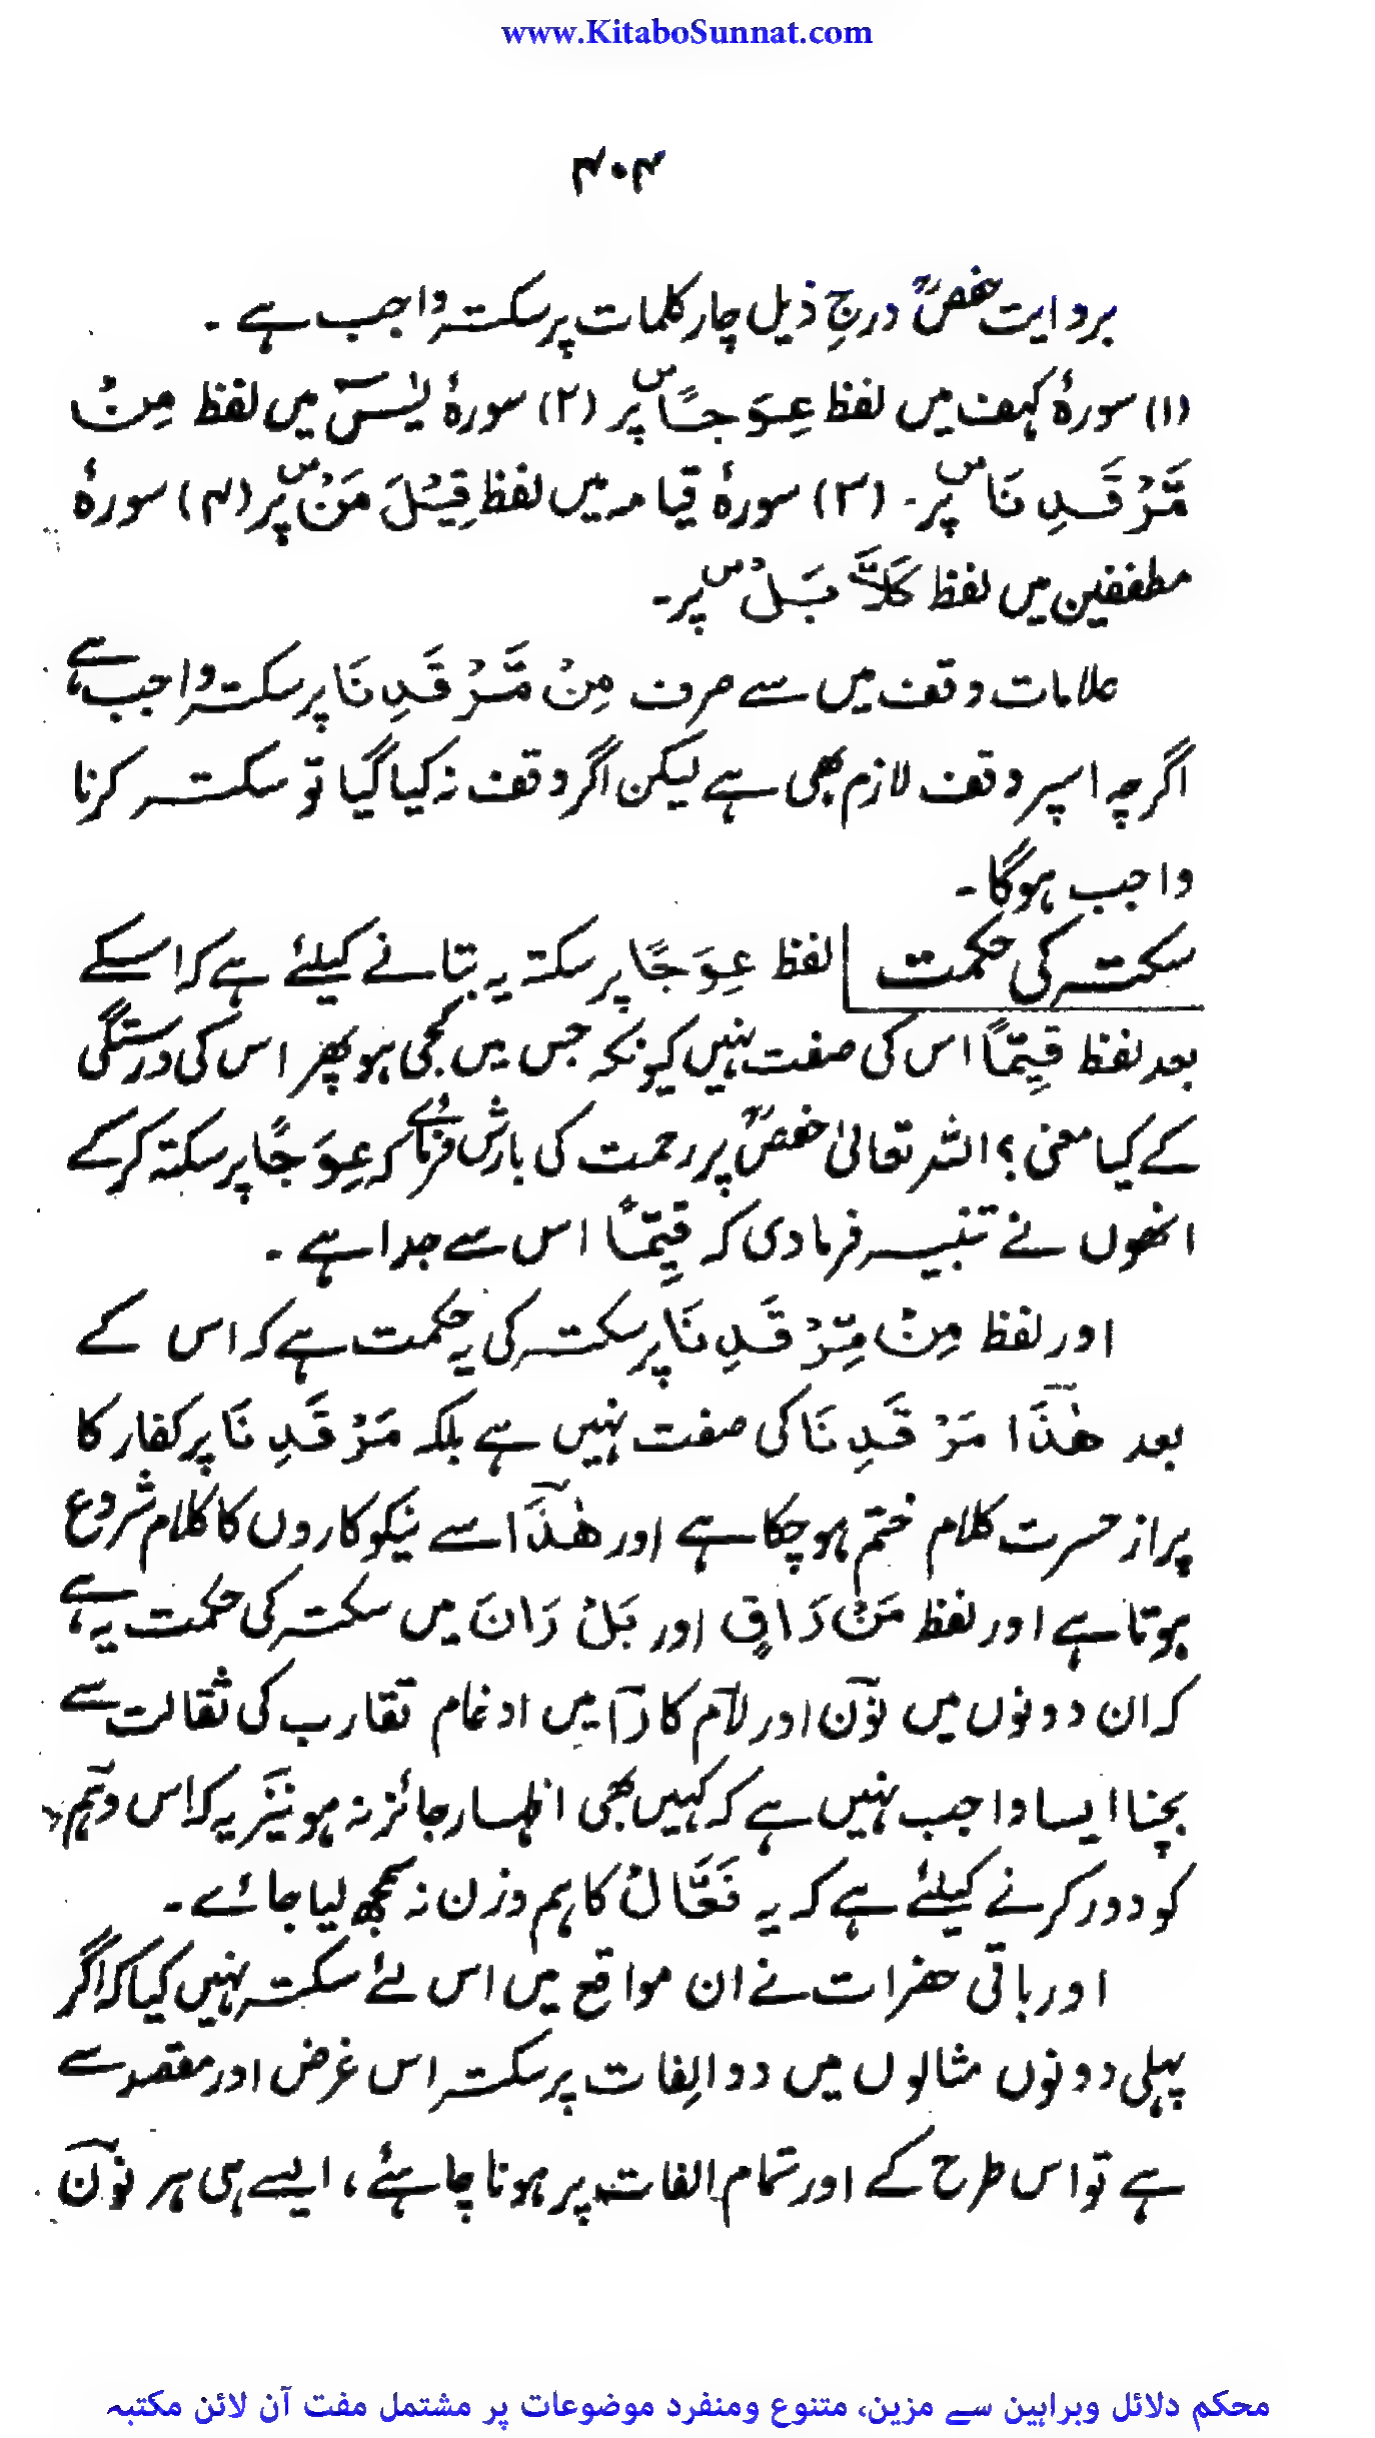 www.KitaboSunnat.com
۴۰۴
بروایت حفصؒ درجِ ذیل چار کلمات پر سکتہ واجب ہے ۔
(۱) سورۂ کہف میں لفظ عِوَجًا س پر (۲) سورۂ یٰسٓ میں لفظ مِنْ
مَّرْقَدِنَا س پر ۔ (۳) سورۂ قیامہ میں لفظ قِیْلَ مَنْ س پر (۴) سورۂ
مطففین میں لفظ کَلَّا بَلْ س پر ۔
علامات وقف میں سے صرف مِنْ مَّرْقَدِنَا پر سکتہ واجب ہے
اگرچہ اسپر وقف لازم بھی ہے لیکن اگر وقف نہ کیا گیا تو سکتہ کرنا
واجب ہوگا ۔
سکتہ کی حکمت لفظ عِوَجًا پر سکتہ یہ بتانے کیلئے ہے کہ اسکے
بعد لفظ قَیِّمًا اس کی صفت نہیں کیونکہ جس میں کجی ہو پھر اس کی درستگی
کے کیا معنی ؟ اللہ تعالیٰ حفصؒ پر رحمت کی بارش فرمائے کہ عِوَجًا پر سکتہ کرکے
انھوں نے تنبیہ فرمادی کہ قَیِّمًا اس سے جدا ہے ۔
اور لفظ مِنْ مَّرْقَدِنَا پر سکتہ کی یہ حکمت ہے کہ اس کے
بعد ھٰذَا مَرْقَدِنَا کی صفت نہیں ہے بلکہ مَرْقَدِنَا پر کفار کا
پراز حسرت کلام ختم ہوچکا ہے اور ھٰذَا سے نیکوکاروں کا کلام شروع
ہوتا ہے اور لفظ مَنْ رَاقٍ اور بَلْ رَانَ میں سکتہ کی حکمت یہ ہے
کہ ان دونوں میں نوٓن اور لآم کا رآ میں ادغام تقارب کی ثقالت سے
بچنا ایسا واجب نہیں ہے کہ کہیں بھی اظہار جائز نہ ہو نیز یہ کہ اس وہم
کو دور کرنے کیلئے ہے کہ یہ فَعَّالٌ کا ہم وزن نہ سمجھ لیا جائے ۔
اور باقی حضرات نے ان مواقع میں اس لئے سکتہ نہیں کیا کہ اگر
پہلی دونوں مثالوں میں دو الِفات پر سکتہ اس غرض اور مقصد سے
ہے تو اس طرح کے اور تمام الفات پر ہونا چاہئے ، ایسے ہی ہر نوٓن
محکم دلائل وبراہین سے مزین، متنوع ومنفرد موضوعات پر مشتمل مفت آن لائن مکتبہ